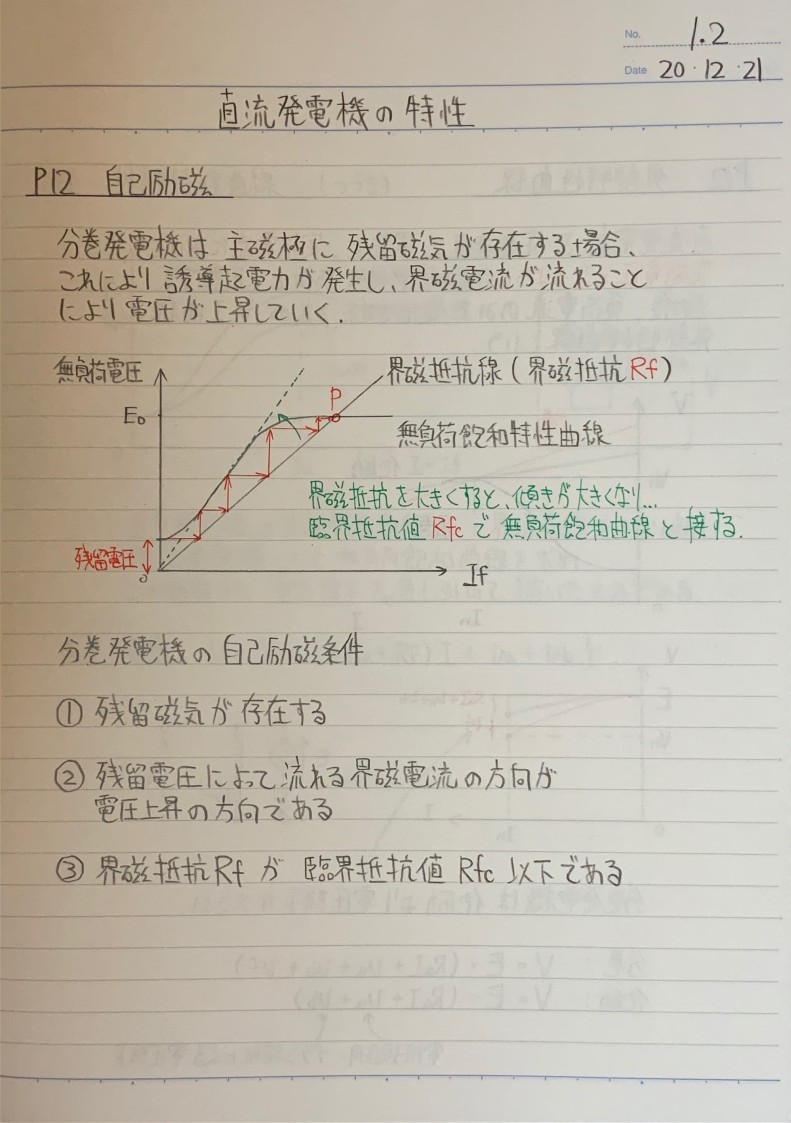 No. 1.2
Date 20・12・21
直流発電機の特性
P12 自己励磁
分巻発電機は主磁極に残留磁気が存在する場合、
これにより誘導起電力が発生し、界磁電流が流れること
により電圧が上昇していく.
無負荷電圧
界磁抵抗線(界磁抵抗Rf)
P
E₀
無負荷飽和特性曲線
界磁抵抗を大きくすると、傾きが大きくなり...
臨界抵抗値Rfcで無負荷飽和曲線と接する.
残留電圧
0
If
分巻発電機の自己励磁条件
① 残留磁気が存在する
② 残留電圧によって流れる界磁電流の方向が
電圧上昇の方向である
③ 界磁抵抗Rfが臨界抵抗値Rfc以下である